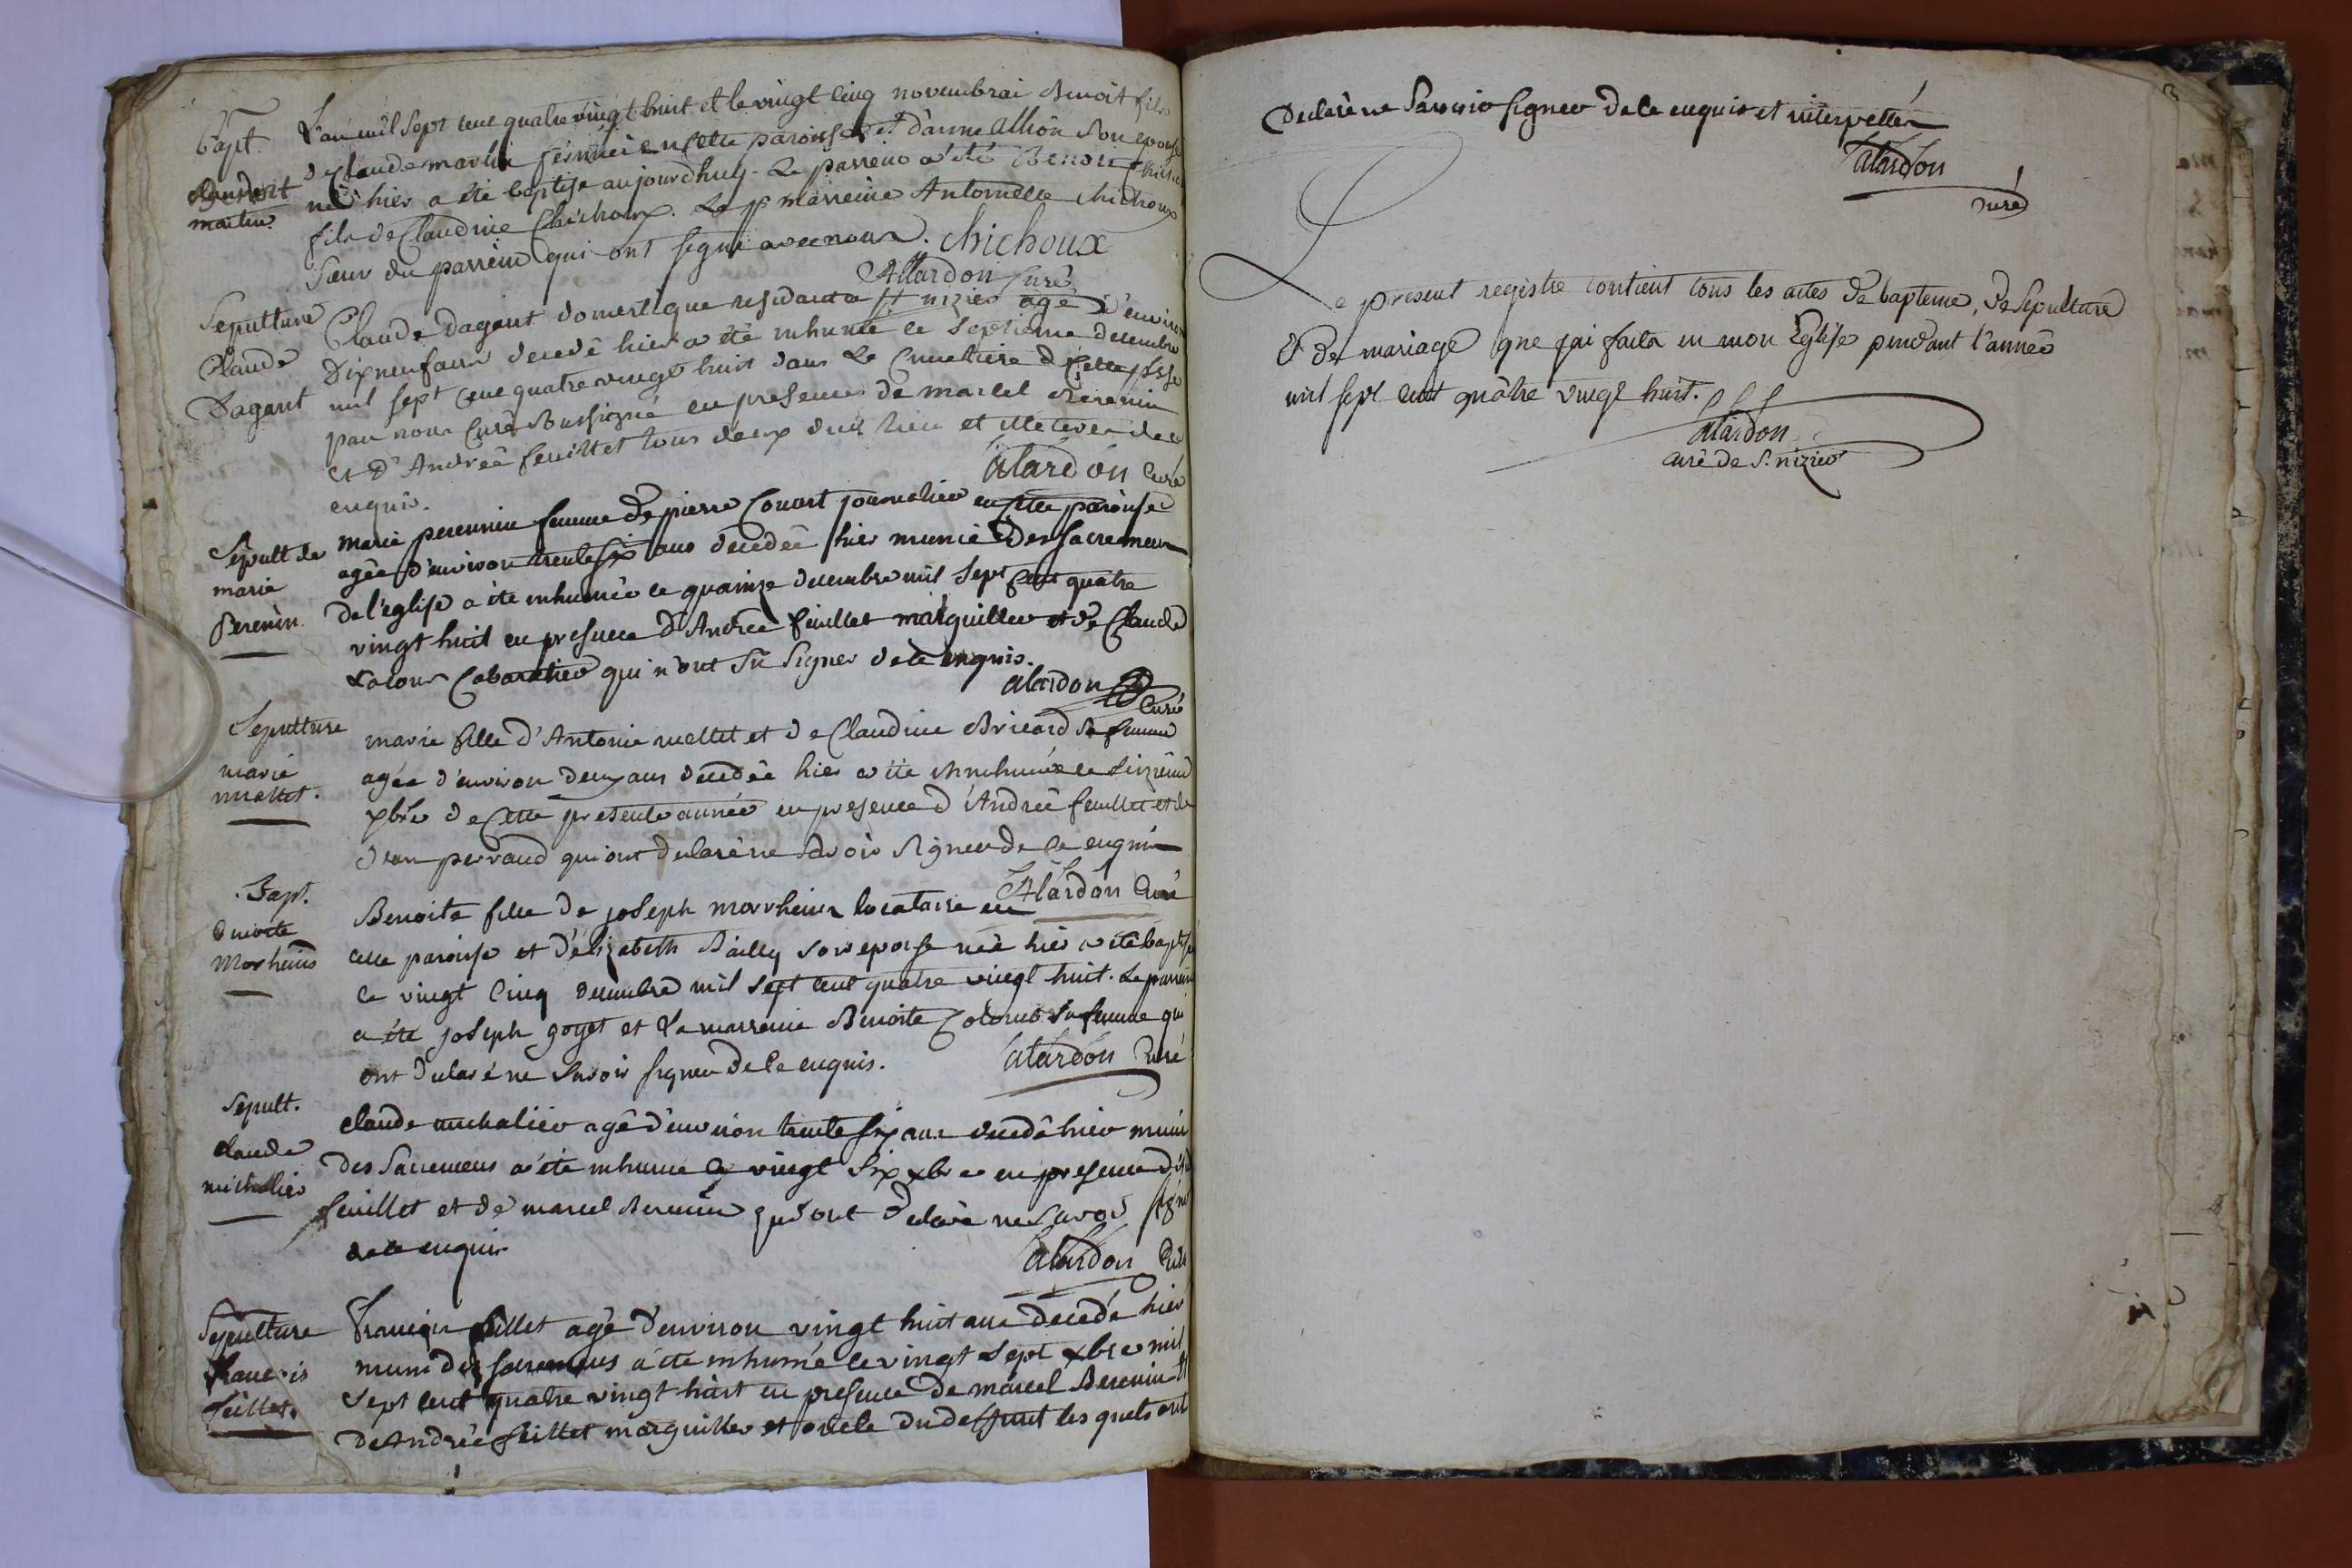 Bapt.
martin
L'an mil sept cent quatre vingt huit et le vingt cinq novembrai Benoit fils
de Claude martin fermier en cette paroisse et d'anne allion son epouse
né hier a été baptisé aujourdhuy. Le parrein a été Benoit
fils de Claudine Chichoux. La marreine Antoinette chichoux
sœur du parrein qui ont signé avec nous. Chichoux
Alardon curé
Sepulture
Claude
Dagant
Claude Dagant domestique residant a st nizier agé d'environ
dix neuf ans decedé hier a été inhumé le septieme decembre
mil sept cent quatre vingt huit dans le cimetiere de cette psse
par nous curé soussigné en presence de marcel Berenin
et d'Andreé feuillet tous deux dud. lieu et illeteres de ce
enquis.
Alardon curé
Sepult de
marie
Perenin
marie perennin femme de pierre Couart journalier en cette paroisse
agée d'environ trente six ans decedeé hier munie des sacremens
de l'eglise a été inhumée le quainze decembre mil sept cent quatre
vingt huit en presence d'Andreé feuillet marguiller et de Claude
Lacour Cabaretier qui n'ont sû signer de ce enquis.
alardon curé
Sepulture
marie
muettet.
marie fille d'Antoine muettet et de Claudine Bricard sa femme
agée d'environ deux ans decedée hier a été inhumée le seizieme
xbre de cette presente année en presence d'Andreé feuillet et de
Jean perraud qui ont declaré ne savoir signer de ce enquis
Alardon curé
Bapt.
Benoite
Morheins
Benoite fille de joseph morrheins locataire en
cette paroisse et d'elizabeth Bailly son epouse née hier a été baptisée
le vingt cinq decembre mil sept cent quatre vingt huit. Le parrein
a été joseph goyet et la marreine Benoite Colomb sa femme qui
ont declaré ne savoir signer de ce enquis.
alardon curé
Sepult.
claude
michalier
claude michalier agé d'environ trente six ans decedé hier muni
des sacremens a été inhumé le vingt six xbre en presence
feuillet et de marcel Berenin qui ont declaré ne savoir signer
de ce enquis
alardon curé
Sepulture
francois
feillet.
francois feillet agé d'environ vingt huit ans decedé hier
muni des sacremens a été inhumé le vingt sept xbre mil
sept cent quatre vingt huit en presence de marcel Berenin et
de Andreé feillet marguiller et oncle du deffunt les quels ont
declaré ne savoir signer de ce enquis et interpellés
alardon
curé
Le present registre contient tous les actes de bapteme, de sepulture
et de mariage que jai faits en mon Eglise pendant l'année
mil sept cent quatre vingt huit.
alardon
curé de st. nizier